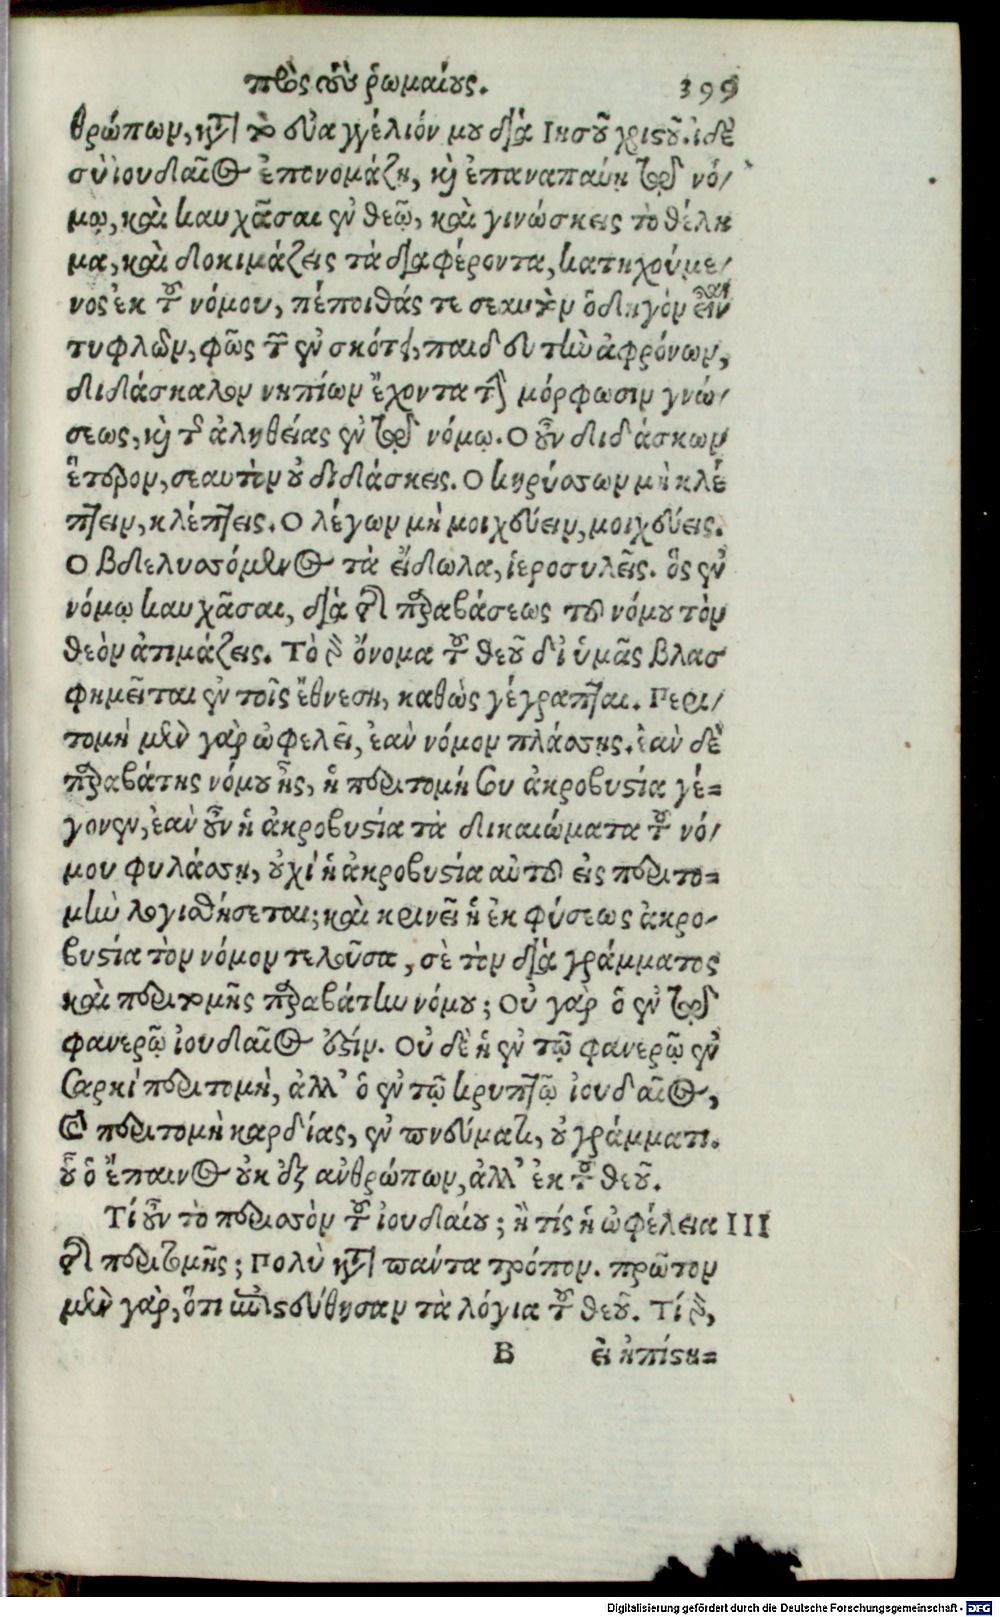 πρὸς τοὺς ῥωμαίους. 399
θρώπων, κατὰ τὸ εὐαγγέλιόν μου διὰ Ιησοῦ χριστοῦ. ἰδὲ
σὺ ἰουδαῖος ἐπονομάζῃ, καὶ ἐπαναπαύῃ τῷ νό/
μῳ, καὶ καυχᾶσαι ἐν θεῷ, καὶ γινώσκεις τὸ θέλη
μα, καὶ δοκιμάζεις τὰ διαφέροντα, κατηχούμε/
νος ἐκ τοῦ νόμου, πέποιθάς τε σεαυτὸν ὁδηγὸν εἶναι
τυφλῶν, φῶς τῶν ἐν σκότει, παιδευτὴν ἀφρόνων,
διδάσκαλον νηπίων ἔχοντα τὴν μόρφωσιν γνώ/
σεως, καὶ τῆς ἀληθείας ἐν τῷ νόμῳ. Ο οὖν διδάσκων
ἕτερον, σεαυτὸν οὐ διδάσκεις. Ο κηρύσσων μὴ κλέ
πτειν, κλέπτεις. Ο λέγων μὴ μοιχεύειν, μοιχεύεις.
Ο βδελυσσόμενος τὰ εἴδωλα, ἱεροσυλεῖς. ὃς ἐν
νόμῳ καυχᾶσαι, διὰ τῆς παραβάσεως τοῦ νόμου τὸν
θεὸν ἀτιμάζεις. Τὸ γὰρ ὄνομα τοῦ θεοῦ δι ὑμᾶς βλασ
φημεῖται ἐν τοῖς ἔθνεσιν, καθὼς γέγραπται. Περι/
τομὴ μὲν γὰρ ὠφελεῖ, ἐὰν νόμον πράσσῃς. ἐὰν δὲ
παραβάτης νόμου ᾖς, ἡ περιτομή σου ἀκροβυστία γέ=
γονεν, ἐὰν οὖν ἡ ἀκροβυστία τὰ δικαιώματα τοῦ νό/
μου φυλάσσῃ, οὐχὶ ἡ ἀκροβυστία αὐτοῦ εἰς περιτο=
μὴν λογισθήσεται; καὶ κρινεῖ ἡ ἐκ φύσεως ἀκρο-
βυστία τὸν νόμον τελοῦσα, σὲ τὸν διὰ γράμματος
καὶ περιτομῆς παραβάτην νόμου; Οὐ γὰρ ὁ ἐν τῷ
φανερῷ ἰουδαῖός ἐστίν. Οὐδὲ ἡ ἐν τῷ φανερῷ ἐν
σαρκὶ περιτομὴ, ἀλλ' ὁ ἐν τῷ κρυπτῷ ἰουδαῖος,
καὶ περιτομὴ καρδίας, ἐν πνεύματι, οὐ γράμματι.
οὗ ὁ ἔπαινος οὐκ ἐξ ἀνθρώπων, ἀλλ' ἐκ τοῦ θεοῦ.
Τί οὖν τὸ περισσὸν τοῦ ἰουδαίου; ἢ τίς ἡ ὠφέλεια III
τῆς περιτομῆς; Πολὺ κατὰ πάντα τρόπον. πρῶτον
μὲν γὰρ, ὅτι ἐπιστεύθησαν τὰ λόγια τοῦ θεοῦ. Τί γὰρ,
B εἰ ἠπίστη=
Digitalisierung gefördert durch die Deutsche Forschungsgemeinschaft - DFG